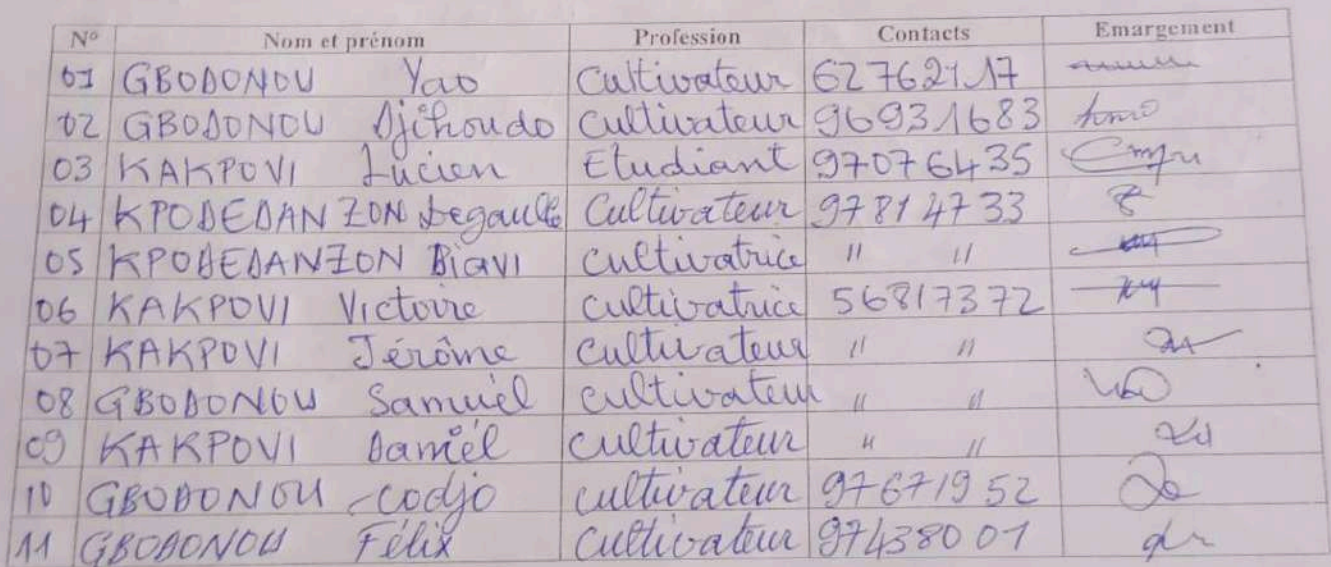 N° Nom et prénom Profession Contacts Emargement
01 GBODONOU Yao Cultivateur 62762117
02 GBODONOU Djihoudo Cultivateur 96931683
03 KAKPOVI Lucien Etudiant 97076435
04 KPODEDANZON Degaulle Cultivateur 97814733
05 KPODEDANZON Biavi Cultivatrice " "
06 KAKPOVI Victoire Cultivatrice 56817372
07 KAKPOVI Jérôme Cultivateur " "
08 GBODONOU Samuel Cultivateur " "
09 KAKPOVI Daniel Cultivateur " "
10 GBODONOU Codjo Cultivateur 97671952
11 GBODONOU Félix Cultivateur 97438001